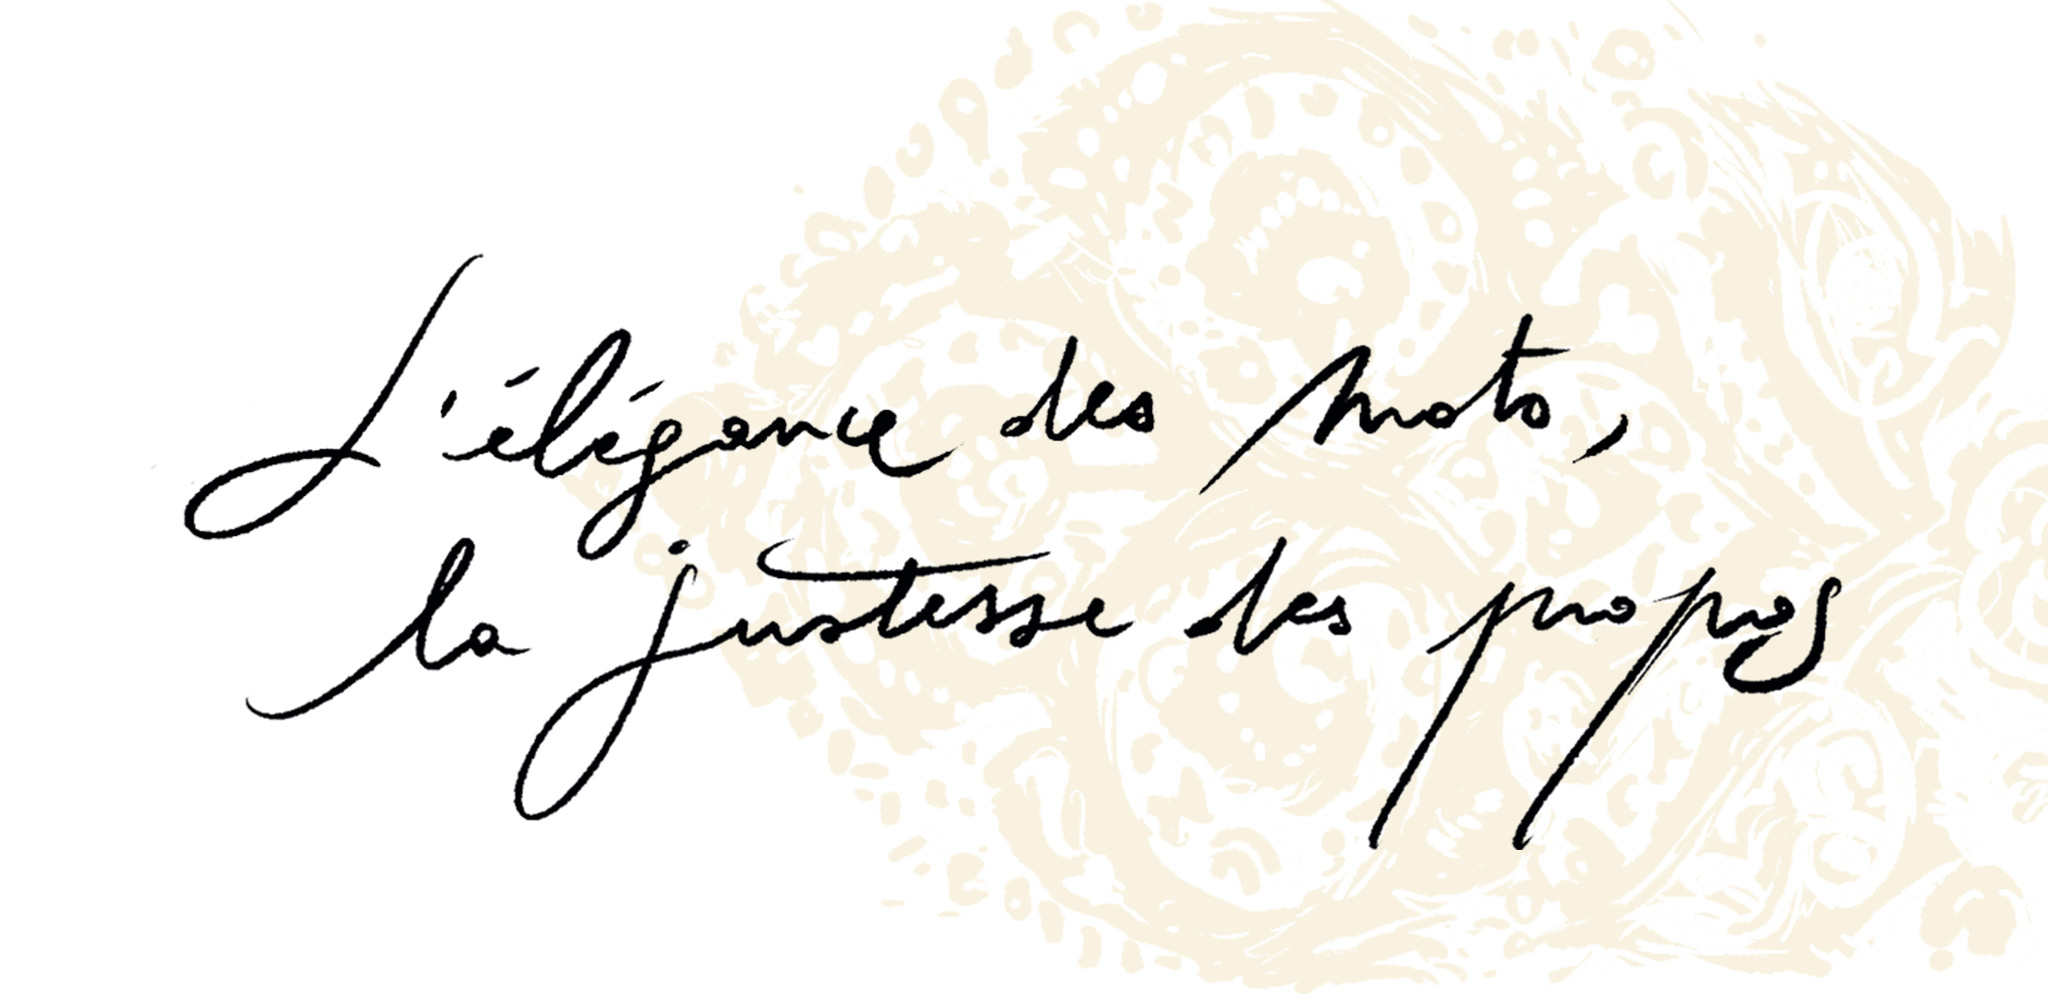 L'élégance des mots,
la justesse des propos